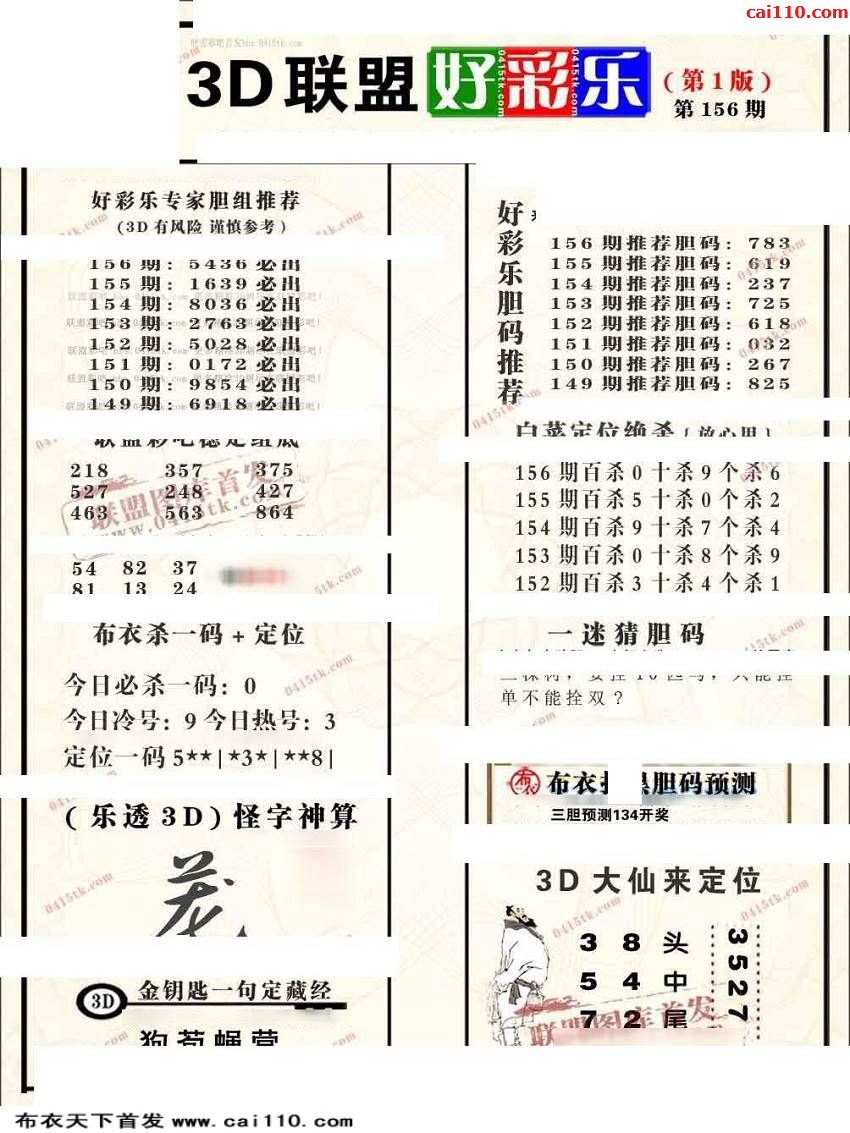 cai110.com
3D联盟好彩乐
(第1版)
第156期
好彩乐专家胆组推荐
(3D有风险 谨慎参考)
156期: 5436必出
155期: 1639必出
154期: 8036必出
153期: 2763必出
152期: 5028必出
151期: 0172必出
150期: 9854必出
149期: 6918必出
联盟彩吧稳定组底
218 357 375
527 248 427
463 563 864
54 82 37
81 13 24
布衣杀一码+定位
今日必杀一码: 0
今日冷号: 9 今日热号: 3
定位一码 5**|*3*|**8|
(乐透3D)怪字神算
3D 金钥匙一句定藏经
狗苟蝇营
好彩乐胆码推荐
156期推荐胆码: 783
155期推荐胆码: 619
154期推荐胆码: 237
153期推荐胆码: 725
152期推荐胆码: 618
151期推荐胆码: 032
150期推荐胆码: 267
149期推荐胆码: 825
白菜定位绝杀(放心用)
156期百杀0十杀9个杀6
155期百杀5十杀0个杀2
154期百杀9十杀7个杀4
153期百杀0十杀8个杀9
152期百杀3十杀4个杀1
一迷猜胆码
三棵树,要拴10匹马,只能拴
单不能拴双?
布衣 胆码预测
三胆预测134开奖
3D大仙来定位
3 8 头
5 4 中
7 2 尾
3527
联盟图库首发
www.0415tk.com
0415tk.com
布衣天下首发 www.cai110.com